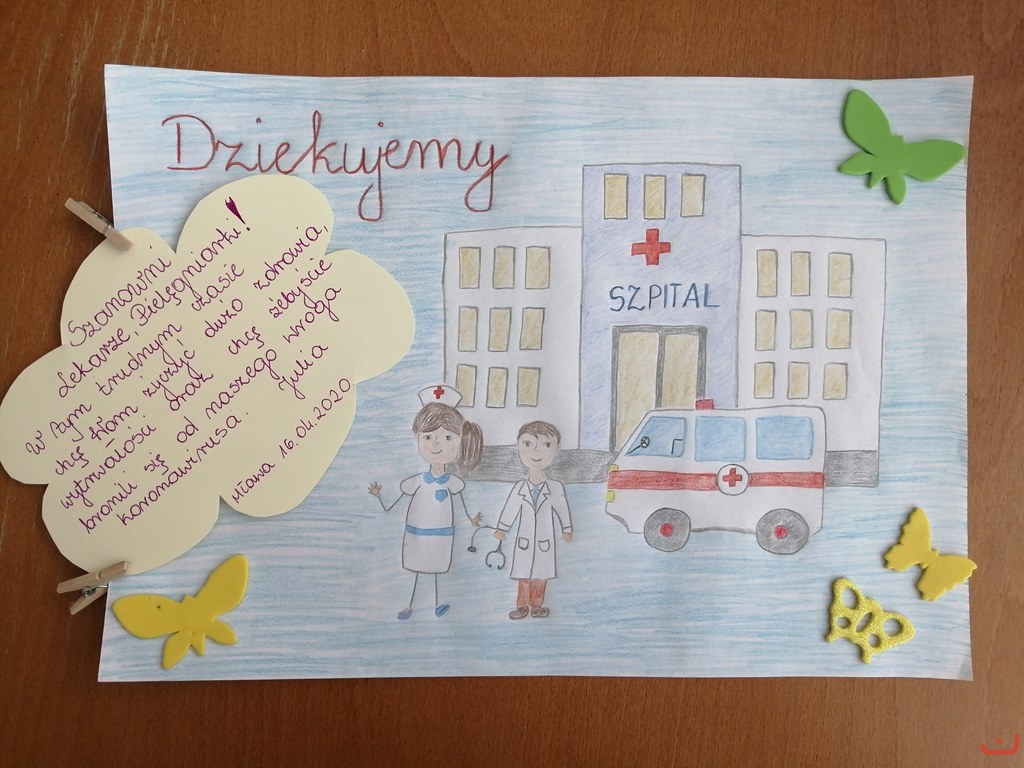 Dziekujemy
Szanowni
Lekarze, Pielęgniarki!
w tym trudnym czasie
chcę Wam życzyć dużo zdrowia,
wytrwałości oraz chcę żebyście
bronili się od naszego wroga
koronawirusa. Julia
Mława 16.04.2020
SZPITAL